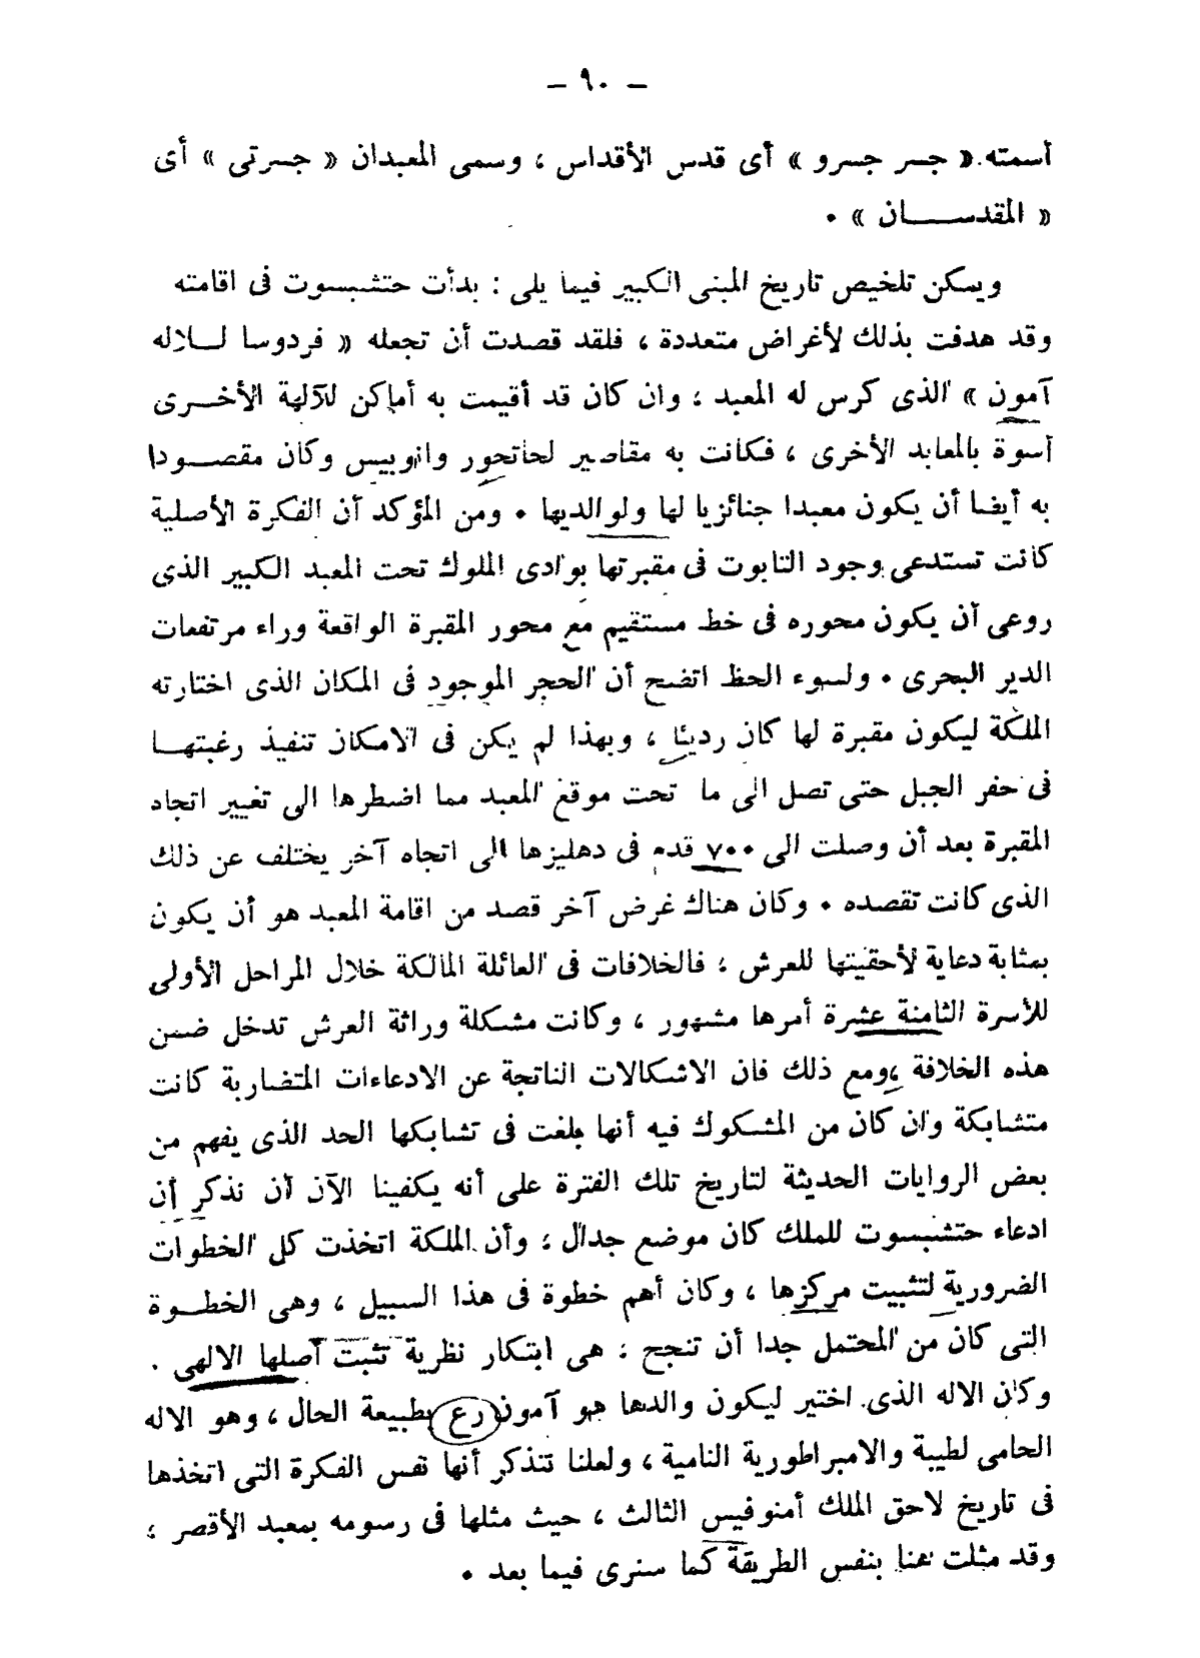 — ٩٠ —
أسمته « جسر جسرو » أى قدس الأقداس ، وسمى المعبدان « جسرتى » أى
« المقدســـان » .
ويمكن تلخيص تاريخ المبنى الكبير فيما يلى : بدأت حتشبسوت فى اقامته
وقد هدفت بذلك لأغراض متعددة ، فلقد قصدت أن تجعله « فردوسا لــلاله
آمون » الذى كرس له المعبد ، وان كان قد أقيمت به أماكن للآلهة الأخــرى
أسوة بالمعابد الأخرى ، فكانت به مقاصير لحاتحور وانوبيس وكان مقصــودا
به أيضا أن يكون معبدا جنائزيا لها ولوالديها . ومن المؤكد أن الفكرة الأصلية
كانت تستدعى وجود التابوت فى مقبرتها بوادى الملوك تحت المعبد الكبير الذى
روعى أن يكون محوره فى خط مستقيم مع محور المقبرة الواقعة وراء مرتفعات
الدير البحرى . ولسوء الحظ اتضح أن الحجر الموجود فى المكان الذى اختارته
الملكة ليكون مقبرة لها كان رديئا ، وبهذا لم يكن فى الامكان تنفيذ رغبتهــا
فى حفر الجبل حتى تصل الى ما تحت موقع المعبد مما اضطرها الى تغيير اتجاه
المقبرة بعد أن وصلت الى ٧٠٠ قدم فى دهليزها الى اتجاه آخر يختلف عن ذلك
الذى كانت تقصده . وكان هناك غرض آخر قصد من اقامة المعبد هو أن يكون
بمثابة دعاية لأحقيتها للعرش ، فالخلافات فى العائلة المالكة خلال المراحل الأولى
للأسرة الثامنة عشرة أمرها مشهور ، وكانت مشكلة وراثة العرش تدخل ضمن
هذه الخلافة ،ومع ذلك فان الاشكالات الناتجة عن الادعاءات المتضاربة كانت
متشابكة وان كان من المشكوك فيه أنها بلغت فى تشابكها الحد الذى يفهم من
بعض الروايات الحديثة لتاريخ تلك الفترة على أنه يكفينا الآن أن نذكر أن
ادعاء حتشبسوت للملك كان موضع جدال ، وأن الملكة اتخذت كل الخطوات
الضرورية لتثبيت مركزها ، وكان أهم خطوة فى هذا السبيل ، وهى الخطــوة
التى كان من المحتمل جدا أن تنجح ، هى ابتكار نظرية تثبت أصلها الالهى .
وكان الاله الذى اختير ليكون والدها هو آمون رع بطبيعة الحال ، وهو الاله
الحامى لطيبة والامبراطورية النامية ، ولعلنا نتذكر أنها نفس الفكرة التى اتخذها
فى تاريخ لاحق الملك أمنوفيس الثالث ، حيث مثلها فى رسومه بمعبد الأقصر ،
وقد مثلت هنا بنفس الطريقة كما سنرى فيما بعد .